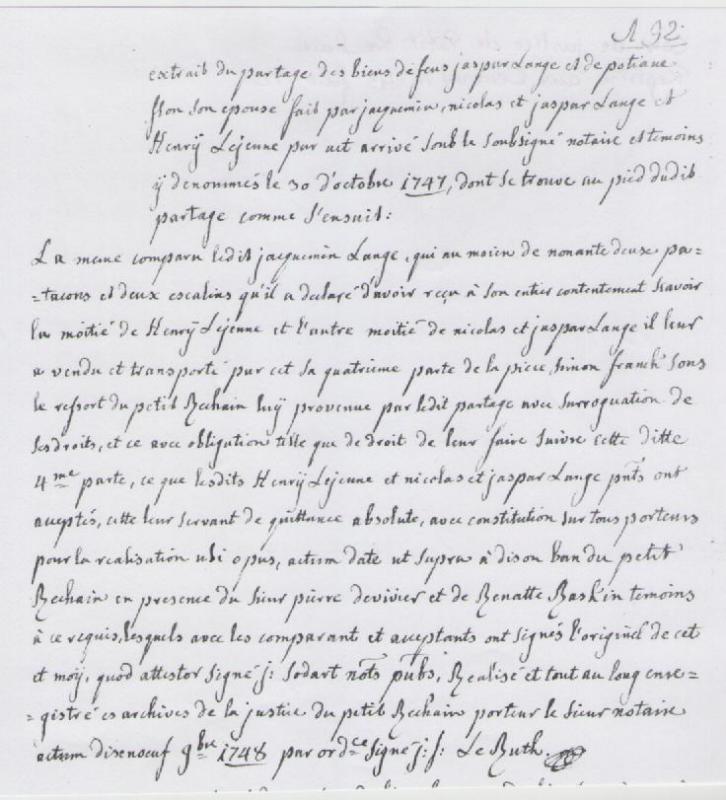 A 92.
extrait du partage des biens de feus jaspar Lange et de potiane
son epouse fait par jacquemin, nicolas et jaspar Lange et
Henrÿ Lejeune par act arrivé soub le soubsigné notaire et temoins
ÿ denommés le 30 d'octobre 1747, dont se trouve au pied dudit
partage comme s'ensuit:
La meme comparu ledit jacquemin Lange, qui au moien de nonante deux pa=
=tacons et deux escalins qu'il a declaré d'avoir reçu à son entier contentement scavoir
la moitié de Henrÿ Lejeune et l'autre moitié de nicolas et jaspar Lange il leur
a vendu et transporté par cet sa quatrieme parte de la piece, simon franck sous
le ressort du petit Rechain luÿ provenue par ledit partage avec surroguation de
ses droits, et ce avec obligation telle que de droit de leur faire suivre cette ditte
4me parte, ce que lesdits Henrÿ Lejeune et nicolas et jaspar Lange pnts ont
aceptés, cette leur servant de quittance absolute, avec constitution sur tous porteurs
pour la realisation ubi opus, actum date ut supra à dison ban du petit
Rechain en presence du sieur pierre devivier et de Renatte Baskin temoins
à ce requis, lesquels avec les comparant et aceptants ont signés l'originel de cet
et moÿ, quod attestor signé j: sodart nots pubs, Realisé et tout au long enre=
=gistré es archives de la justice du petit Rechain porteur le sieur notaire
actum disenoeuf 9bre 1748 par ordce signé j: s: Le Ruth.